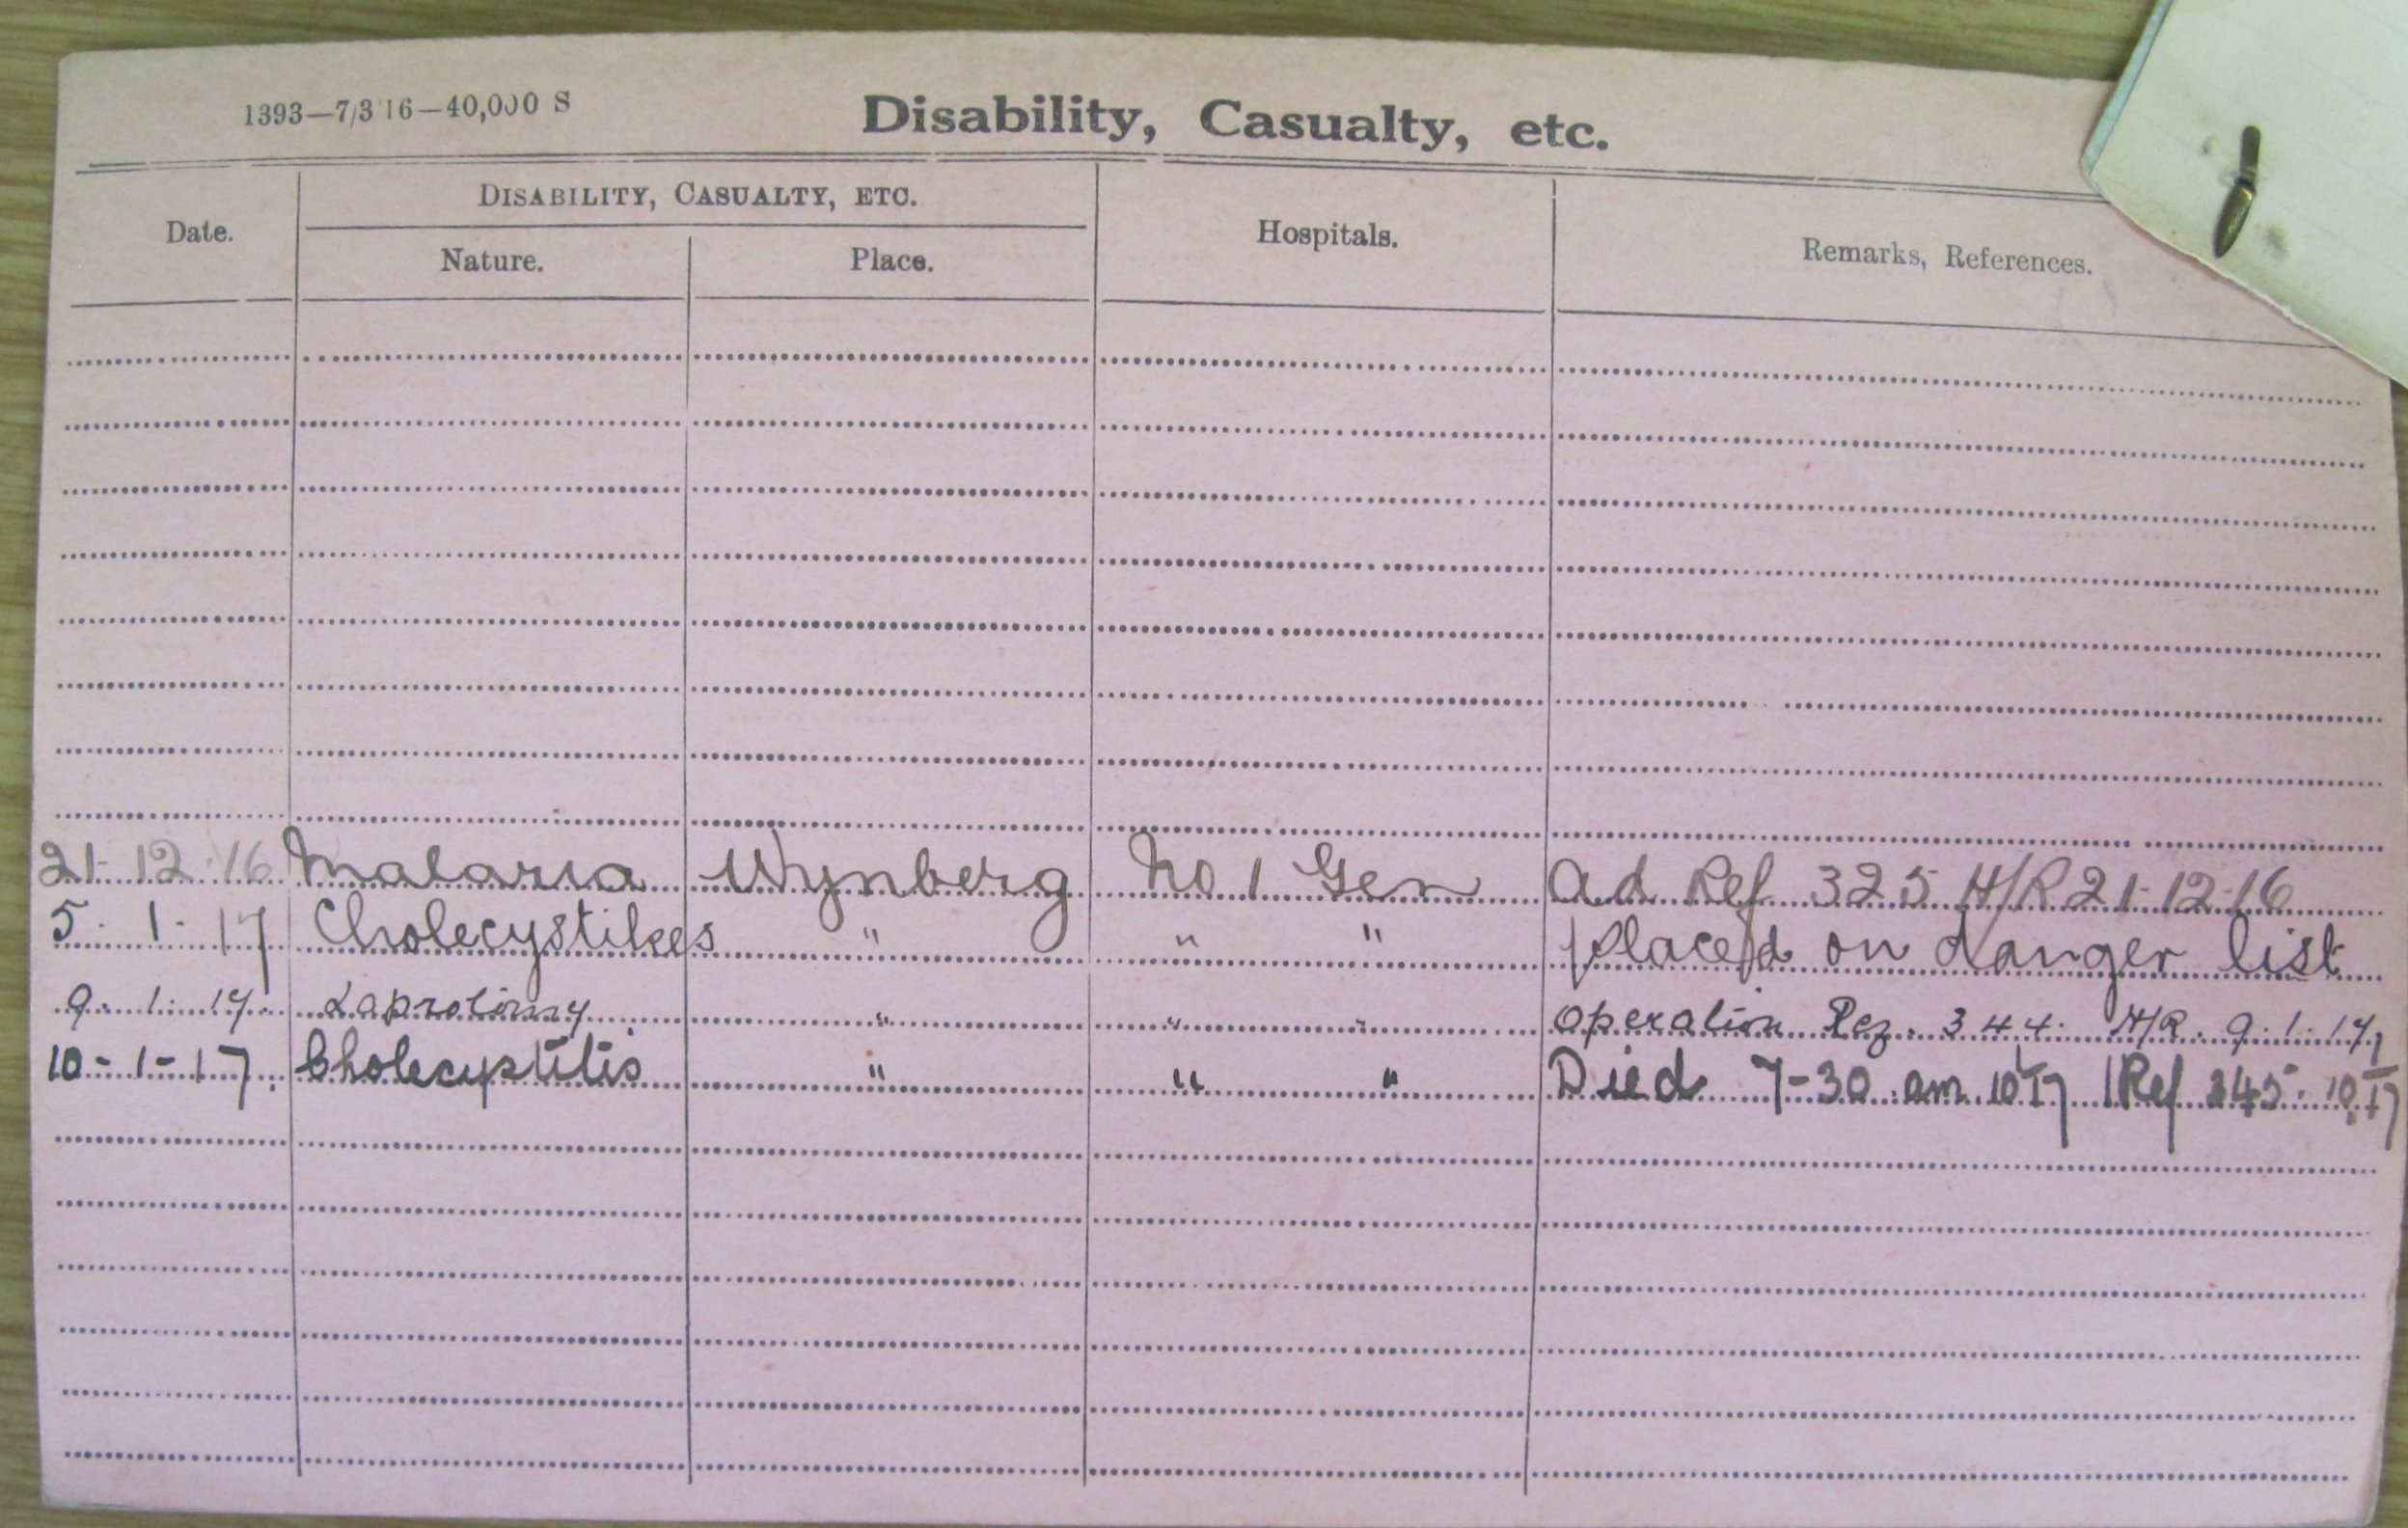 1393—7/3 16—40,000 S
Disability, Casualty, etc.
Date.
DISABILITY, CASUALTY, ETC.
Nature.
Place.
Hospitals.
Remarks, References.
21-12-16 Malaria Wynberg No 1 Gen Ad Ref 325 H/R 21-12-16
5-1-17 Cholecystikes " " " Placed on danger list
9-1-17 Laprotomy " " " Operation Reg. 344. H/R. 9.1.17
10-1-17. Cholecystitis " " " Died 7-30 am 10/1/17 Ref 345. 10/1/17